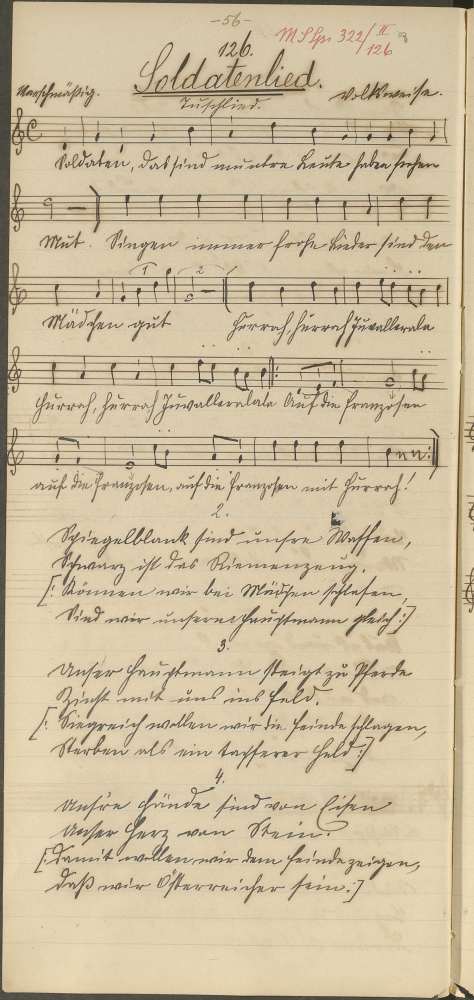 -56-
126.
MS Lp. 322/II
126
Soldatenlied.
Marschmäßig.
Tuschlied.
Volksweise.
Soldaten, das sind muntre Leute haben frohen
Mut. Singen immer frohe Lieder sind den
1 2
Mädchen gut Hurrah, hurrah Juvallerala
Hurrah, hurrah Juvalleralala Auf die Franzosen
auf die Franzosen, auf die Franzosen mit Hurrah!
2.
Spiegelblank sind unsre Waffen,
Schwarz ist das Riemenzeug.
[: Können wir bei Mädchen schlafen,
Sind wir unserer Hauptmann gleich :]
3.
Unser Hauptmann steigt zu Pferde
Zieht mit uns ins Feld.
[: Siegreich wollen wir die Feinde schlagen,
Sterben als ein tapferer Held :]
4.
Uns're Hände sind von Eisen
Unser Herz von Stein.
[: Damit wollen wir dem Feinde zeigen,
daß wir Österreicher sein. :]